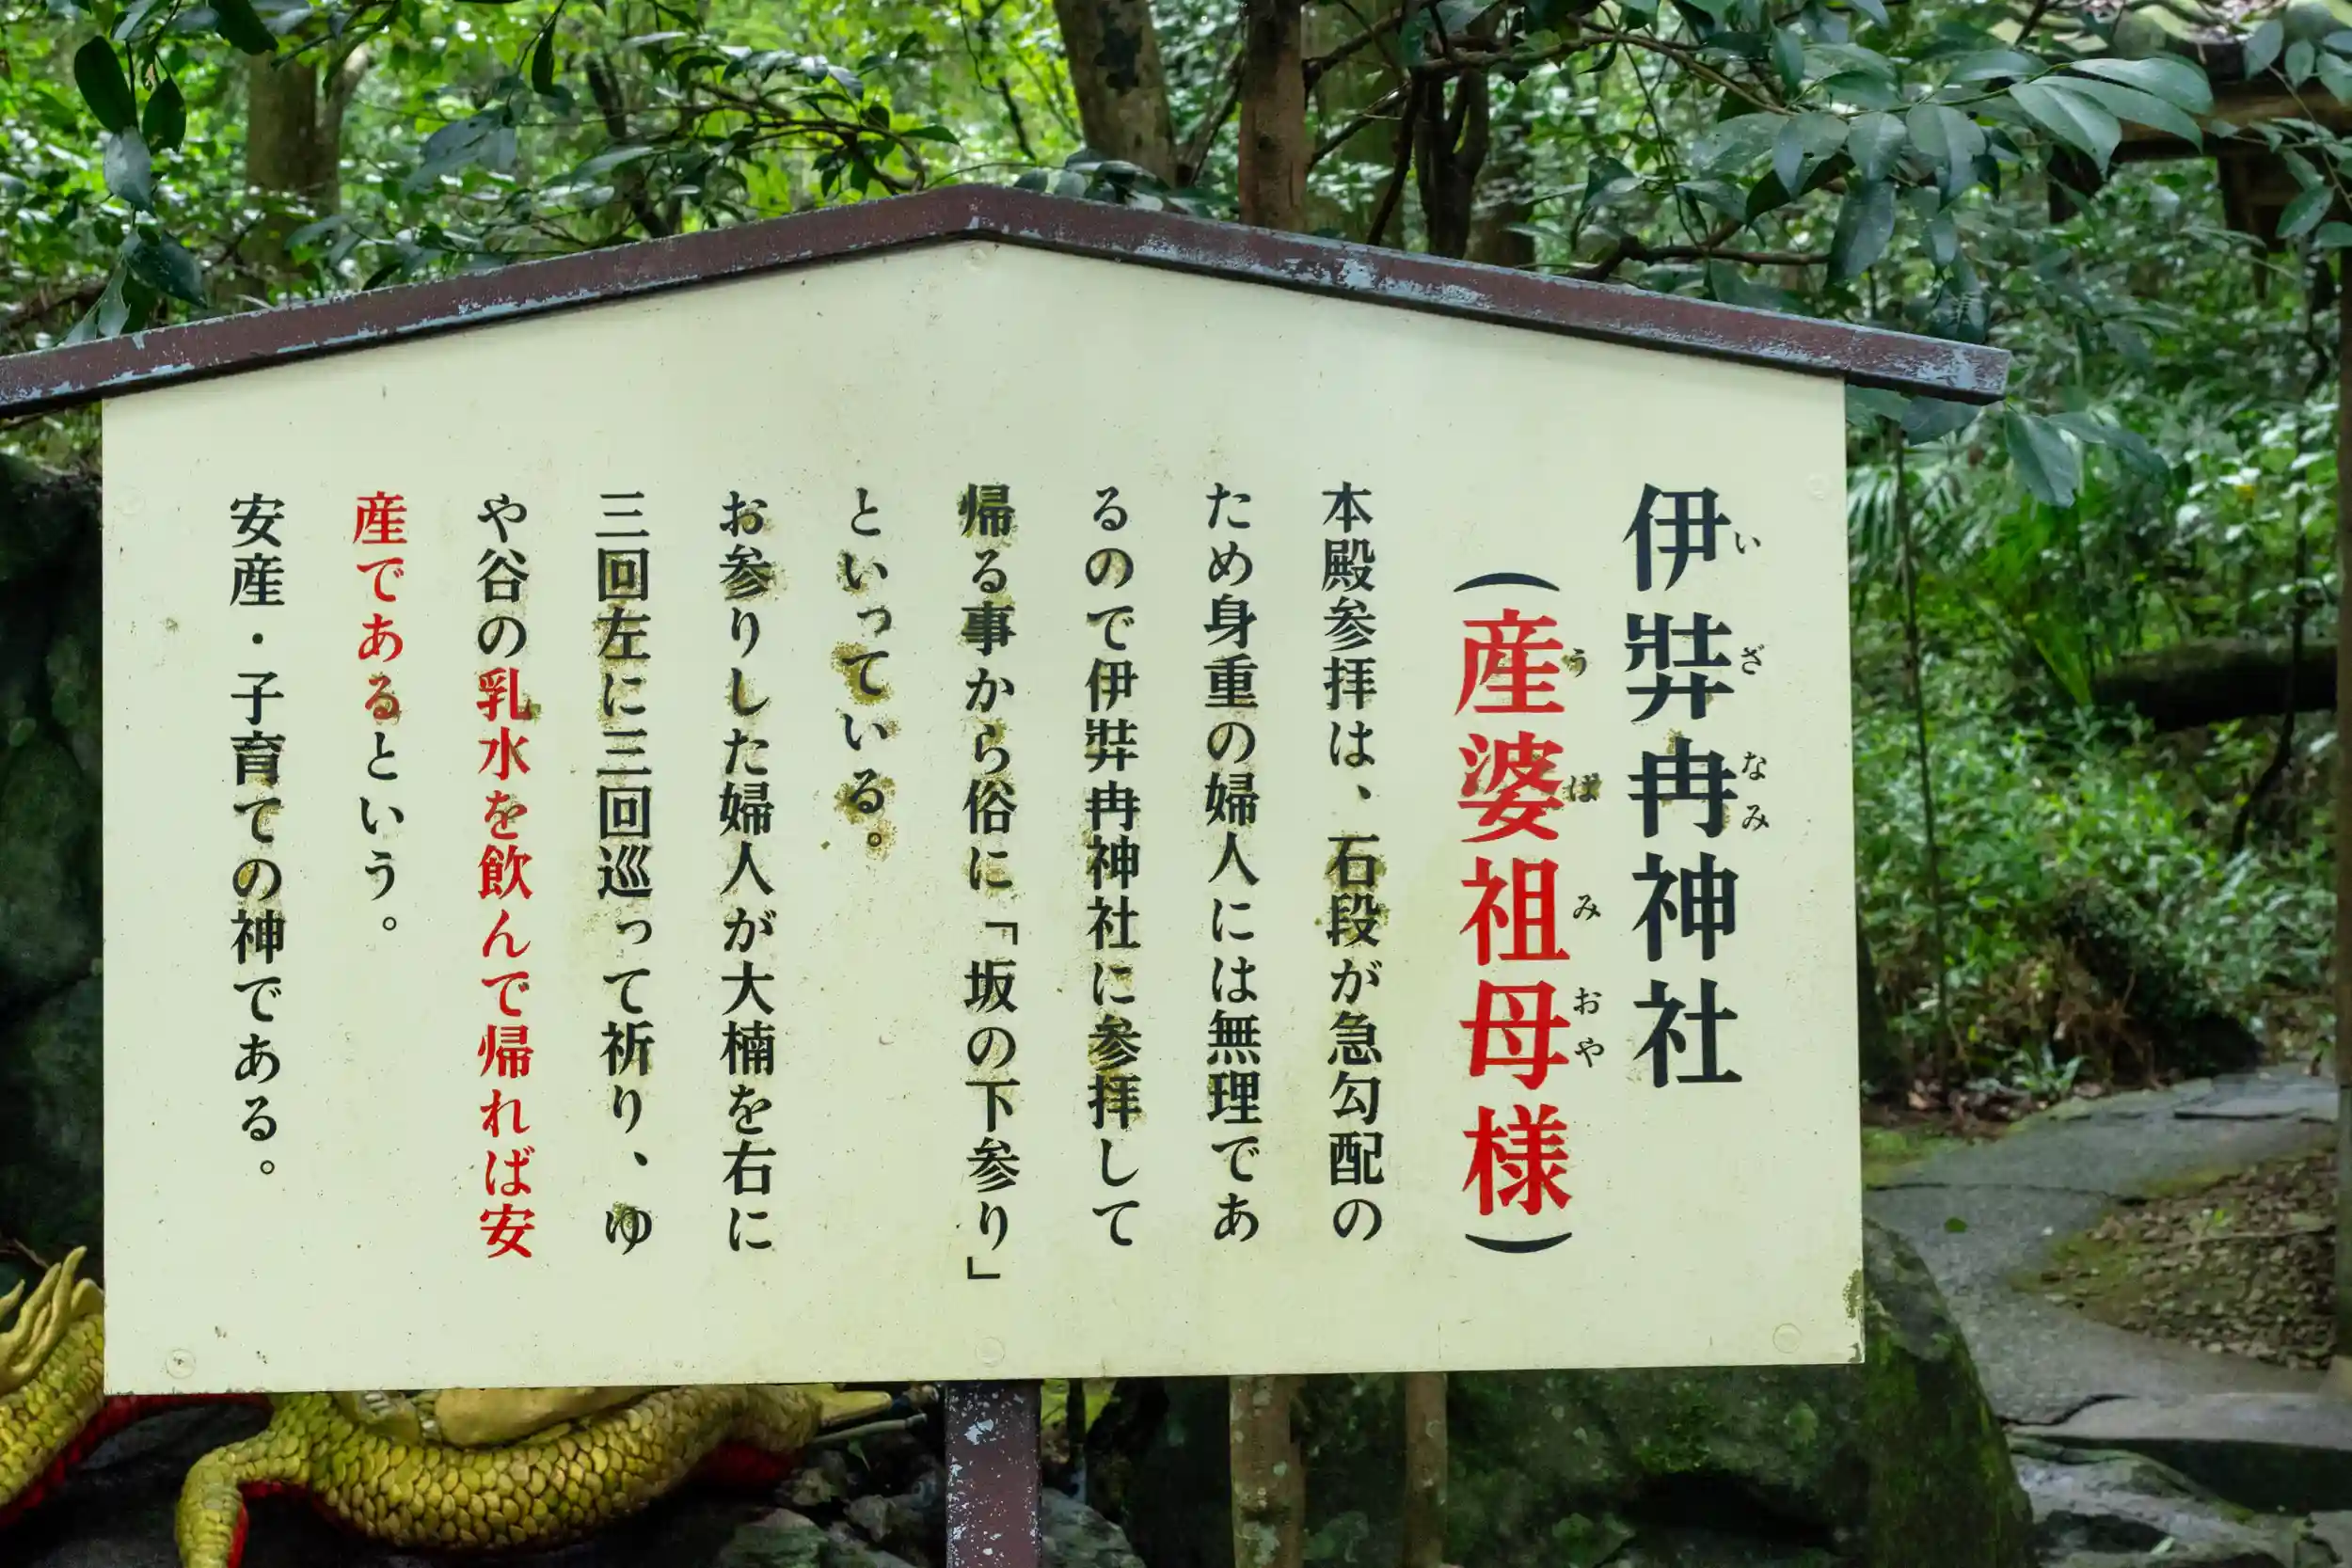 伊弉冉神社
いざなみ
（産婆祖母様）
うばみおや
本殿参拝は、石段が急勾配の
ため身重の婦人には無理であ
るので伊弉冉神社に参拝して
帰る事から俗に「坂の下参り」
といっている。
お参りした婦人が大楠を右に
三回左に三回巡って祈り、ゆ
や谷の乳水を飲んで帰れば安
産であるという。
安産・子育ての神である。